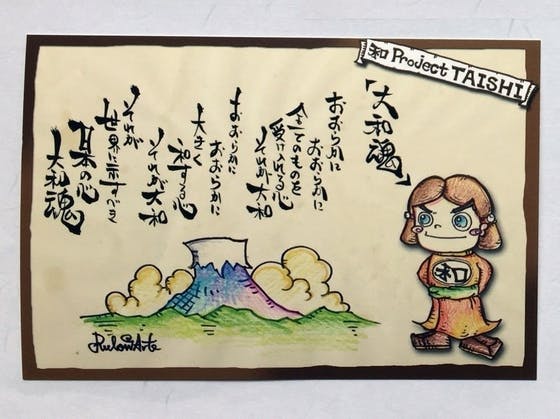 和 Project TAISHI
「大和魂」
おおらかに
おおらかに
全てのものを
受け入れる心
それが大和
おおらかに
おおらかに
大きく
和する心
それが大和
それが
世界に示すべき
本の心
大和魂
和